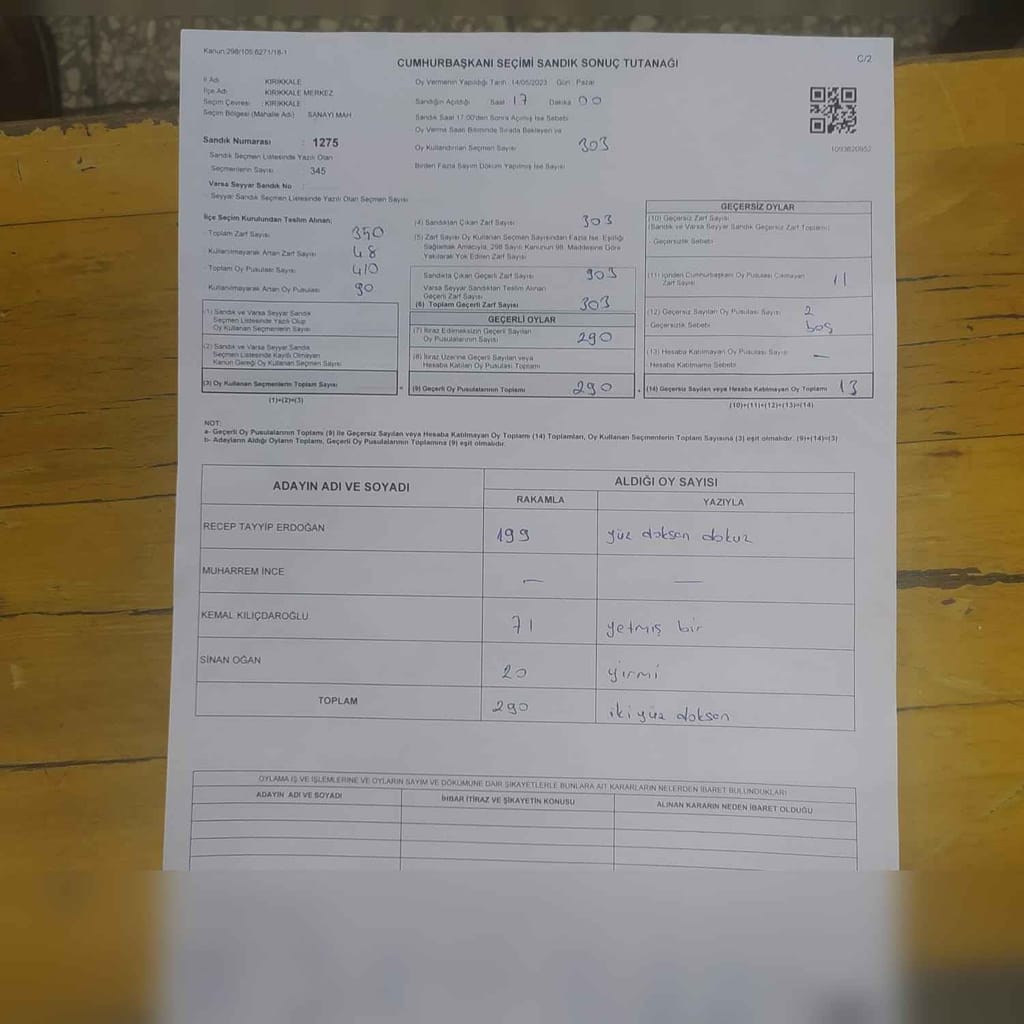 Kanun:298/105 6271/18-1
CUMHURBAŞKANI SEÇİMİ SANDIK SONUÇ TUTANAĞI
C/2
İl Adı KIRIKKALE
İlçe Adı KIRIKKALE MERKEZ
Seçim Çevresi : KIRIKKALE
Seçim Bölgesi (Mahalle Adı) SANAYİ MAH
Sandık Numarası : 1275
Sandık Seçmen Listesinde Yazılı Olan
Seçmenlerin Sayısı : 345
Varsa Seyyar Sandık No
Seyyar Sandık Seçmen Listesinde Yazılı Olan Seçmen Sayısı
Oy Vermenin Yapıldığı Tarih : 14/05/2023 Gün : Pazar
Sandığın Açıldığı Saat 17 Dakika 00
Sandık Saat 17.00'den Sonra Açılmış İse Sebebi
Oy Verme Saati Bitiminde Sırada Bekleyen ve
Oy Kullandırılan Seçmen Sayısı 303
Birden Fazla Sayım Döküm Yapılmış İse Sayısı
1093820952
İlçe Seçim Kurulundan Teslim Alınan;
- Toplam Zarf Sayısı 350
- Kullanılmayarak Artan Zarf Sayısı 48
- Toplam Oy Pusulası Sayısı 410
- Kullanılmayarak Artan Oy Pusulası 90
(1) Sandık ve Varsa Seyyar Sandık
Seçmen Listesinde Yazılı Olup
Oy Kullanan Seçmenlerin Sayısı
(2) Sandık ve Varsa Seyyar Sandık
Seçmen Listesinde Kayıtlı Olmayan
Kanun Gereği Oy Kullanan Seçmen Sayısı
(3) Oy Kullanan Seçmenlerin Toplam Sayısı
(1)+(2)=(3)
(4) Sandıktan Çıkan Zarf Sayısı 303
(5) Zarf Sayısı Oy Kullanan Seçmen Sayısından Fazla İse, Eşitliği
Sağlamak Amacıyla, 298 Sayılı Kanunun 98. Maddesine Göre
Yakılarak Yok Edilen Zarf Sayısı
Sandıkta Çıkan Geçerli Zarf Sayısı 303
Varsa Seyyar Sandıktan Teslim Alınan
Geçerli Zarf Sayısı
(6) Toplam Geçerli Zarf Sayısı 303
GEÇERLİ OYLAR
(7) İtiraz Edilmeksizin Geçerli Sayılan
Oy Pusulalarının Sayısı 290
(8) İtiraz Üzerine Geçerli Sayılan veya
Hesaba Katılan Oy Pusulası Toplamı
(9) Geçerli Oy Pusulalarının Toplamı 290
GEÇERSİZ OYLAR
(10) Geçersiz Zarf Sayısı
(Sandık ve Varsa Seyyar Sandık Geçersiz Zarf Toplamı)
- Geçersizlik Sebebi
(11) İçinden Cumhurbaşkanı Oy Pusulası Çıkmayan
Zarf Sayısı 11
(12) Geçersiz Sayılan Oy Pusulası Sayısı 2
- Geçersizlik Sebebi boş
(13) Hesaba Katılmayan Oy Pusulası Sayısı —
- Hesaba Katılmama Sebebi
(14) Geçersiz Sayılan veya Hesaba Katılmayan Oy Toplamı 13
(10)+(11)+(12)+(13)=(14)
NOT:
a- Geçerli Oy Pusulalarının Toplamı (9) ile Geçersiz Sayılan veya Hesaba Katılmayan Oy Toplamı (14) Toplamları, Oy Kullanan Seçmenlerin Toplam Sayısına (3) eşit olmalıdır. (9)+(14)=(3)
b- Adayların Aldığı Oyların Toplamı, Geçerli Oy Pusulalarının Toplamına (9) eşit olmalıdır.
ADAYIN ADI VE SOYADI ALDIĞI OY SAYISI
RAKAMLA YAZIYLA
RECEP TAYYİP ERDOĞAN 199 yüz doksan dokuz
MUHARREM İNCE — —
KEMAL KILIÇDAROĞLU 71 yetmiş bir
SİNAN OĞAN 20 yirmi
TOPLAM 290 iki yüz doksan
OYLAMA İŞ VE İŞLEMLERİNE VE OYLARIN SAYIM VE DÖKÜMÜNE DAİR ŞİKAYETLERLE BUNLARA AİT KARARLARIN NELERDEN İBARET BULUNDUKLARI
ADAYIN ADI VE SOYADI İHBAR İTİRAZ VE ŞİKAYETİN KONUSU ALINAN KARARIN NEDEN İBARET OLDUĞU